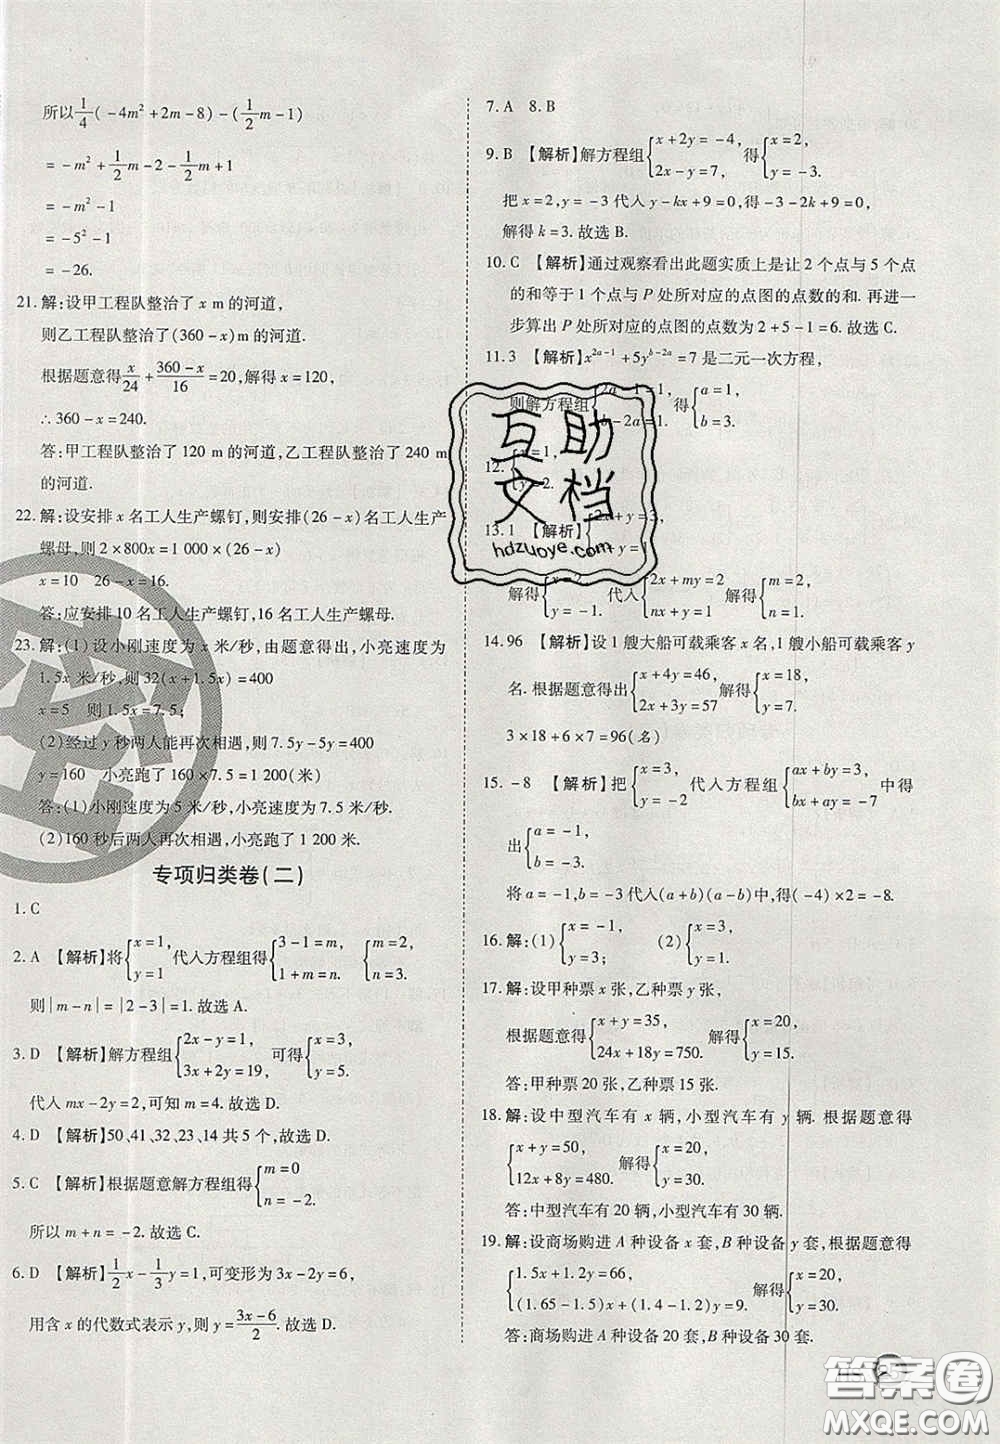 所以1/4(-4m²+2m-8)-(1/2m-1)
=-m²+1/2m-2-1/2m+1
=-m²-1
=-5²-1
=-26.
21.解:设甲工程队整治了 x m的河道,
则乙工程队整治了(360-x)m的河道.
根据题意得x/24+(360-x)/16=20,解得x=120,
∴360-x=240.
答:甲工程队整治了 120 m的河道,乙工程队整治了 240 m
的河道.
22.解:设安排x名工人生产螺钉,则安排(26-x)名工人生产
螺母,则2×800x=1 000×(26-x)
x=10 26-x=16
答:应安排10名工人生产螺钉,16名工人生产螺母.
23.解:(1)设小刚速度为x米/秒,由题意得出,小亮速度为
1.5x米/秒,则32(x+1.5x)=400
x=5 则1.5x=7.5;
(2)经过y秒两人能再次相遇,则7.5y-5y=400
y=160 小亮跑了160×7.5=1 200(米)
答:(1)小刚速度为5米/秒,小亮速度为7.5米/秒.
(2)160秒后两人再次相遇,小亮跑了1 200米.
专项归类卷(二)
1.C
2.A 【解析】将{x=1, y=1 代入方程组得{3-1=m, 1+m=n. {m=2, n=3.
则|m-n|=|2-3|=1.故选A.
3.D 【解析】解方程组{2x-y=1, 3x+2y=19, 可得{x=3, y=5.
代入mx-2y=2,可知m=4.故选D.
4.D 【解析】50、41、32、23、14共5个,故选D.
5.C 【解析】根据题意解方程组得{m=0 n=-2.
所以m+n=-2.故选C.
6.D 【解析】1/2x-1/3y=1,可变形为3x-2y=6,
用含x的代数式表示y,则y=(3x-6)/2.故选D.
7.A 8.B
9.B 【解析】解方程组{x+2y=-4, 2x-y=7, 得{x=2, y=-3.
把x=2,y=-3代入y-kx+9=0,得-3-2k+9=0,
解得k=3.故选B.
10.C 【解析】通过观察看出此题实质上是让2个点与5个点
的和等于1个点与P处所对应的点图的点数的和.再进一
步算出P处所对应的点图的点数为2+5-1=6.故选C.
11.3 【解析】x²ᵃ⁻¹+5yᵇ⁻²ᵃ=7是二元一次方程,
则解方程组{2a-1=1, b-2a=1. 得{a=1, b=3.
12.{x=1, y=2.
13.1 【解析】
解得{x=2 y=-1. 代入{2x+my=2 nx+y=1 解得{m=2 n=1.
14.96 【解析】设1艘大船可载乘客x名,1艘小船可载乘客y
名.根据题意得出{x+4y=46, 2x+3y=57 解得{x=18, y=7.
3×18+6×7=96(名)
15.-8 【解析】把{x=3, y=-2 代入方程组{ax+by=3, bx+ay=-7 中得
出{a=-1, b=-3.
将a=-1,b=-3代入(a+b)(a-b)中,得(-4)×2=-8.
16.解:(1){x=-1, y=3; (2){x=3, y=1.
17.解:设甲种票x张,乙种票y张,
根据题意得{x+y=35, 24x+18y=750. 解得{x=20, y=15.
答:甲种票20张,乙种票15张.
18.解:设中型汽车有x辆,小型汽车有y辆.根据题意得
{x+y=50, 12x+8y=480. 解得{x=20, y=30.
答:中型汽车有20辆,小型汽车有30辆.
19.解:设商场购进A种设备x套,B种设备y套,根据题意得
{1.5x+1.2y=66, (1.65-1.5)x+(1.4-1.2)y=9. 解得{x=20, y=30.
答:商场购进A种设备20套,B种设备30套.
互助
文档
hdzuoye.com
答案圈
MXQE.COM